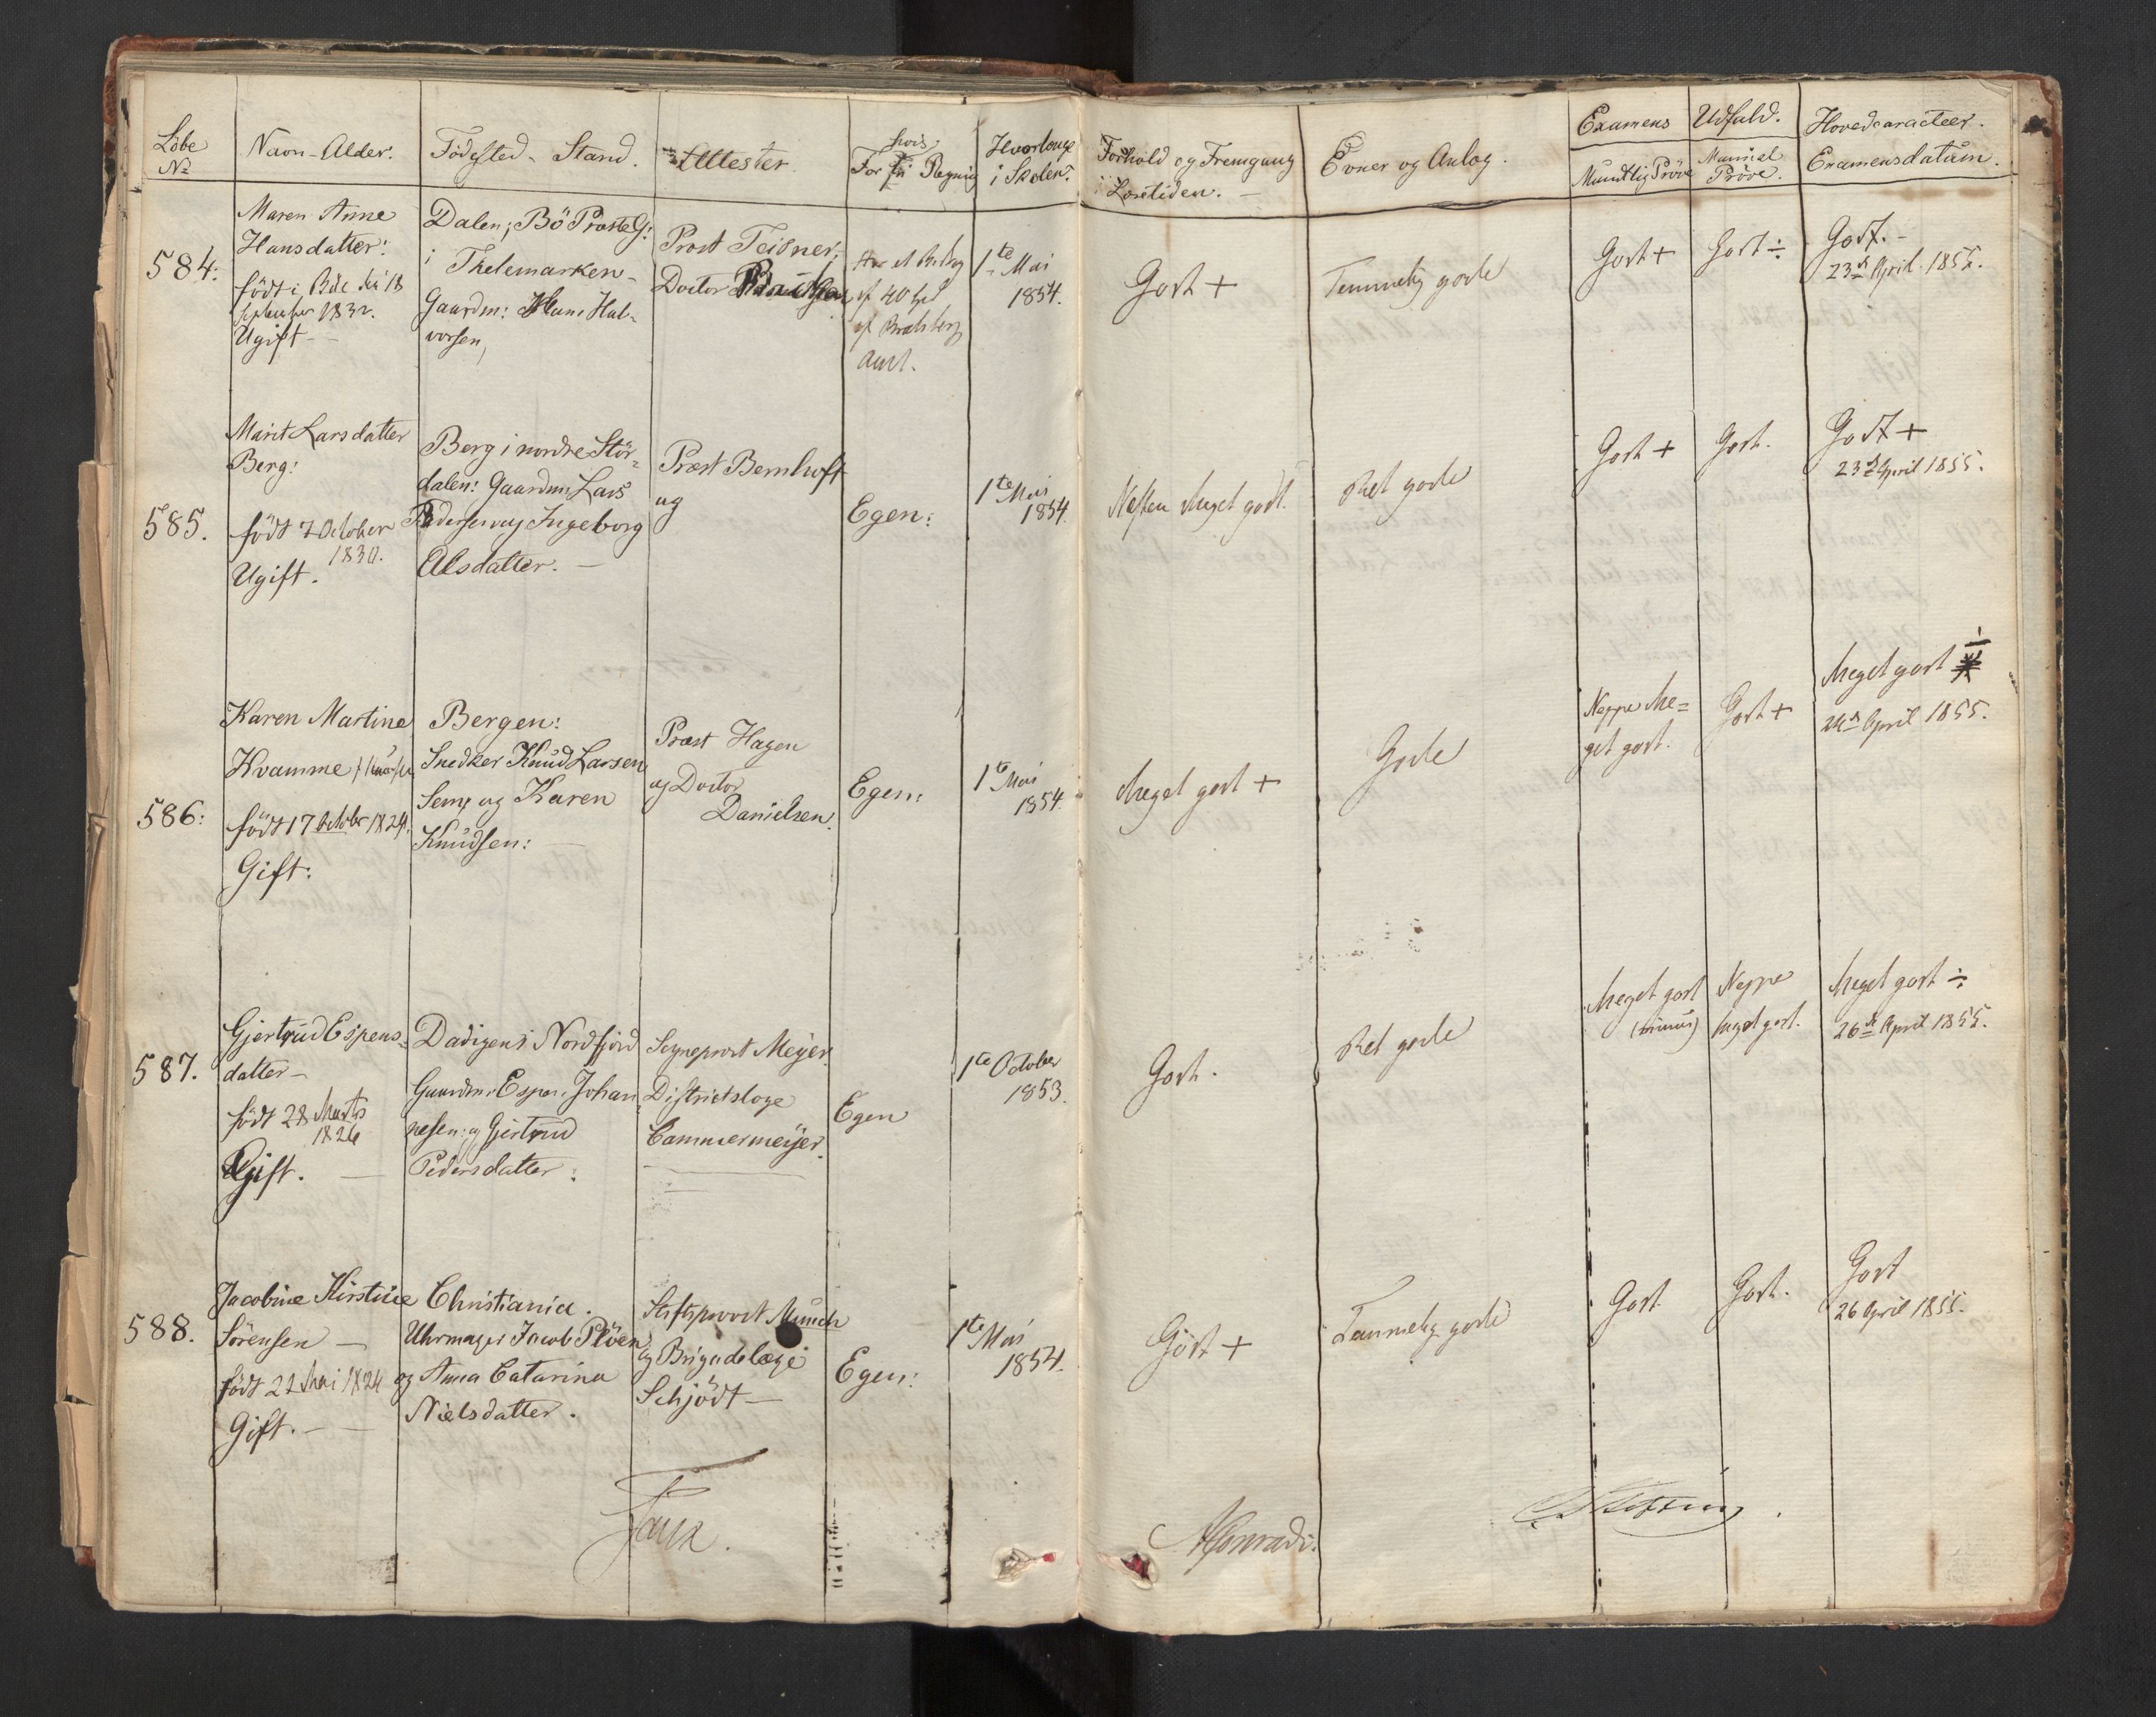 Löbe
No
Navn-Alder.
Födested - Stand.
Attester.
hvis
For Regning
Hvorlenge
i Skolen.
Forhold og Fremgang
i Læsetiden. -
Evner og Anlæg.
Examens Udfald.
Mundtlig Pröve
Manuel
Pröve.
Hovedcaracteer.
Examensdatum.
584:
Maren Anne
Hansdatter:
född i
September 1832.
Ugift -
Dalen; Bö Præsteg:
i Thelemarken -
Gaardm: Hans Hal-
vorsen,
Prost Teisner,
Doctor
af 40
af Bratsberg
Amt.
1te Mai
1854.
Godt +
Temmelig gode
Godt +
Godt ÷
Godt. -
23de April 1855.
585.
Marit Larsdatter
Berg:
född 7 October
1830.
Ugift.
Berg i nordre Stör-
dalen: Gaardm: Lars
Pedersen og Ingeborg
Olsdatter. -
Præst Bernhoft
og
Egen:
1te Mai
1854.
Næsten Meget godt.
Ret gode
Godt +
Godt.
Godt +
23de April 1855.
586:
Karen Martine
Hvamme
född 17 October 1824.
Gift:
Bergen:
Snedker Knud Larsen
Seme og Karen
Knudsen: -
Præst Hagen
og Doctor
Danielsen.
Egen:
1te Mai
1854.
Meget godt +
Gode
Neppe Me=
get godt.
Godt +
Meget godt ÷
24de April 1855.
587.
Gjertrud Espens-
datter -
född 28 Marts
1826
Gift. -
Dadigens Nordfjord
Gaardm: Espen Johan-
nesen: og Gjertrud
Pedersdatter:
Sogneprest Meyer.
Districtslæge
Cammermeÿer.
Egen
1te October
1853.
Godt.
Ret gode
Meget godt
(minus)
Neppe
Meget godt.
Meget godt ÷
26de April 1855.
588.
Jacobine Kirstine
Sörensen -
född 22 Mai 1824
Gift. -
Christiania.
Uhrmager Jacob Plöen
og Anna Catarina
Nielsdatter.
Stiftsprovst Münch
og Brigadelæge
Schjödt -
Egen:
1te Mai
1854.
Godt +
Temmelig gode
Godt
Godt.
Godt
26 April 1855.
Faye.
Conradi.